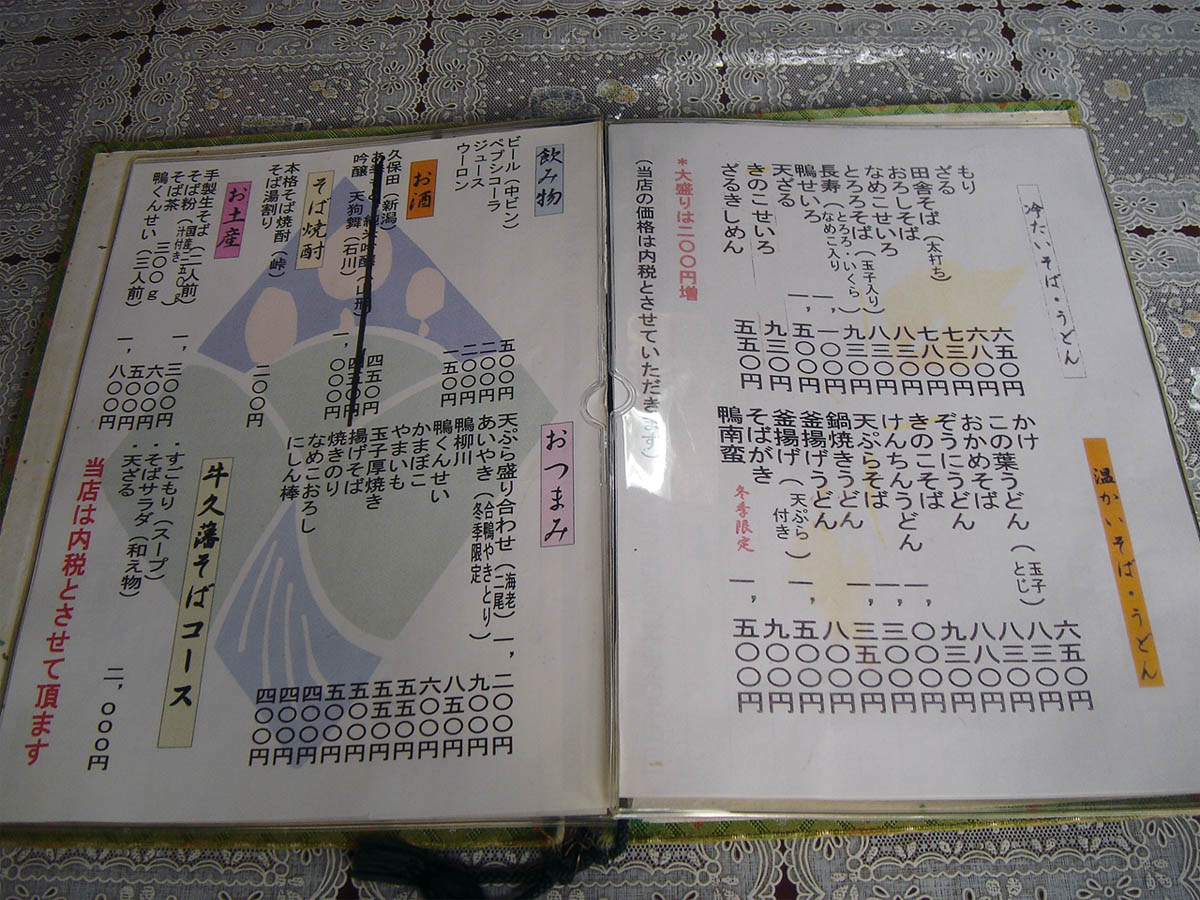 冷たいそば・うどん
もり 六五〇円
ざる 六八〇円
田舎そば（太打ち） 七三〇円
おろしそば 七八〇円
なめこせいろ 八三〇円
とろろそば（玉子入り） 八三〇円
長寿（とろろ・いくら なめこ入り） 九三〇円
鴨せいろ 一，一〇〇円
天ざる 一，五〇〇円
きのこせいろ 九三〇円
ざるきしめん 五五〇円
＊大盛りは二〇〇円増
（当店の価格は内税とさせていただきます）
温かいそば・うどん
かけ 六五〇円
この葉うどん（玉子とじ） 八三〇円
おかめそば 八三〇円
ぞうにうどん 八八〇円
きのこそば 九三〇円
けんちんうどん 一，〇〇〇円
天ぷらそば 一，三〇〇円
鍋焼きうどん 一，三五〇円
釜揚げうどん 八〇〇円
釜揚げ（天ぷら付き） 一，五〇〇円
そばがき 九〇〇円
鴨南蛮 冬季限定 一，五〇〇円
飲み物
ビール（中ビン） 五〇〇円
ペプシコーラ 二〇〇円
ジュース 二〇〇円
ウーロン 一五〇円
お酒
久保田（新潟） 四五〇円
吟醸 天狗舞（石川） 一，〇〇〇円
そば焼酎
本格そば焼酎（峠）
そば湯割り 二〇〇円
お土産
手製生そば（二人前 汁付き） 一，三〇〇円
そば粉（国産二五〇ｇ） 六〇〇円
そば茶 三〇〇ｇ 五〇〇円
鴨くんせい（三人前） 一，八〇〇円
おつまみ
天ぷら盛り合わせ（海老二尾） 一，二〇〇円
あいやき（合鴨やきとり） 九〇〇円
鴨柳川 冬季限定 八五〇円
鴨くんせい 六〇〇円
かまぼこ 五五〇円
やまいも 五五〇円
玉子厚焼き 五〇〇円
揚げそば 五〇〇円
焼きのり 四〇〇円
なめこおろし 四〇〇円
にしん棒 四〇〇円
牛久藩そばコース
・すごもり（スープ）
・そばサラダ（和え物）
・天ざる 二，〇〇〇円
当店は内税とさせて頂ます